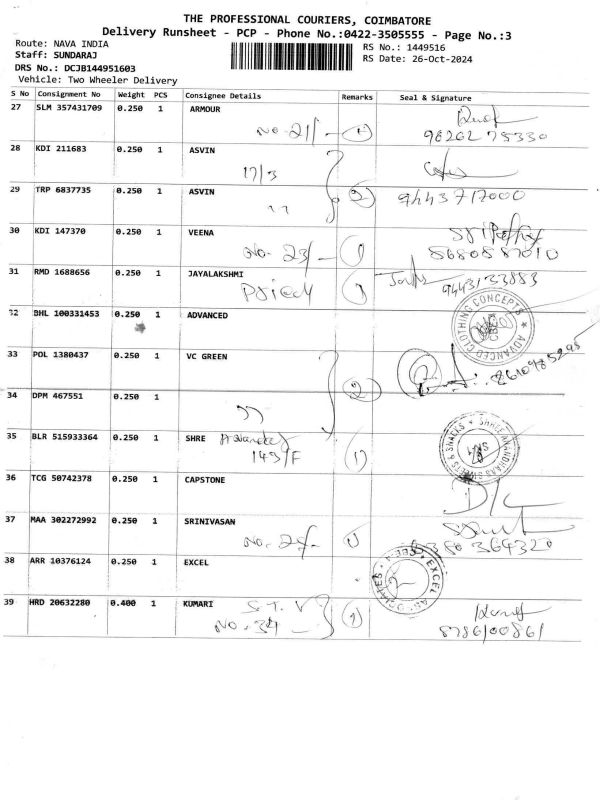 THE PROFESSIONAL COURIERS, COIMBATORE
Delivery Runsheet - PCP - Phone No.:0422-3505555 - Page No.:3
Route: NAVA INDIA
RS No.: 1449516
Staff: SUNDARAJ
RS Date: 26-Oct-2024
DRS No.: DCJB144951603
Vehicle: Two Wheeler Delivery
S No Consignment No Weight PCS Consignee Details Remarks Seal & Signature
27 SLM 357431709 0.250 1 ARMOUR
No-21/- 1
98262 75330
28 KDI 211683 0.250 1 ASVIN
17/3
29 TRP 6837735 0.250 1 ASVIN 2
9443717000
30 KDI 147370 0.250 1 VEENA
No. 23/- 1
8680587010
31 RMD 1688656 0.250 1 JAYALAKSHMI
1 9443133883
32 BHL 100331453 0.250 1 ADVANCED
ADVANCED CLOTHING CONCEPTS
33 POL 1380437 0.250 1 VC GREEN
2
34 DPM 467551 0.250 1
35 BLR 515933364 0.250 1 SHRE
149/F 1
36 TCG 50742378 0.250 1 CAPSTONE
D/C
37 MAA 302272992 0.250 1 SRINIVASAN
No. 28/- 1
6380364320
38 ARR 10376124 0.250 1 EXCEL
EXCEL
39 HRD 20632280 0.400 1 KUMARI S.T.V
No. 34 1
8786100861